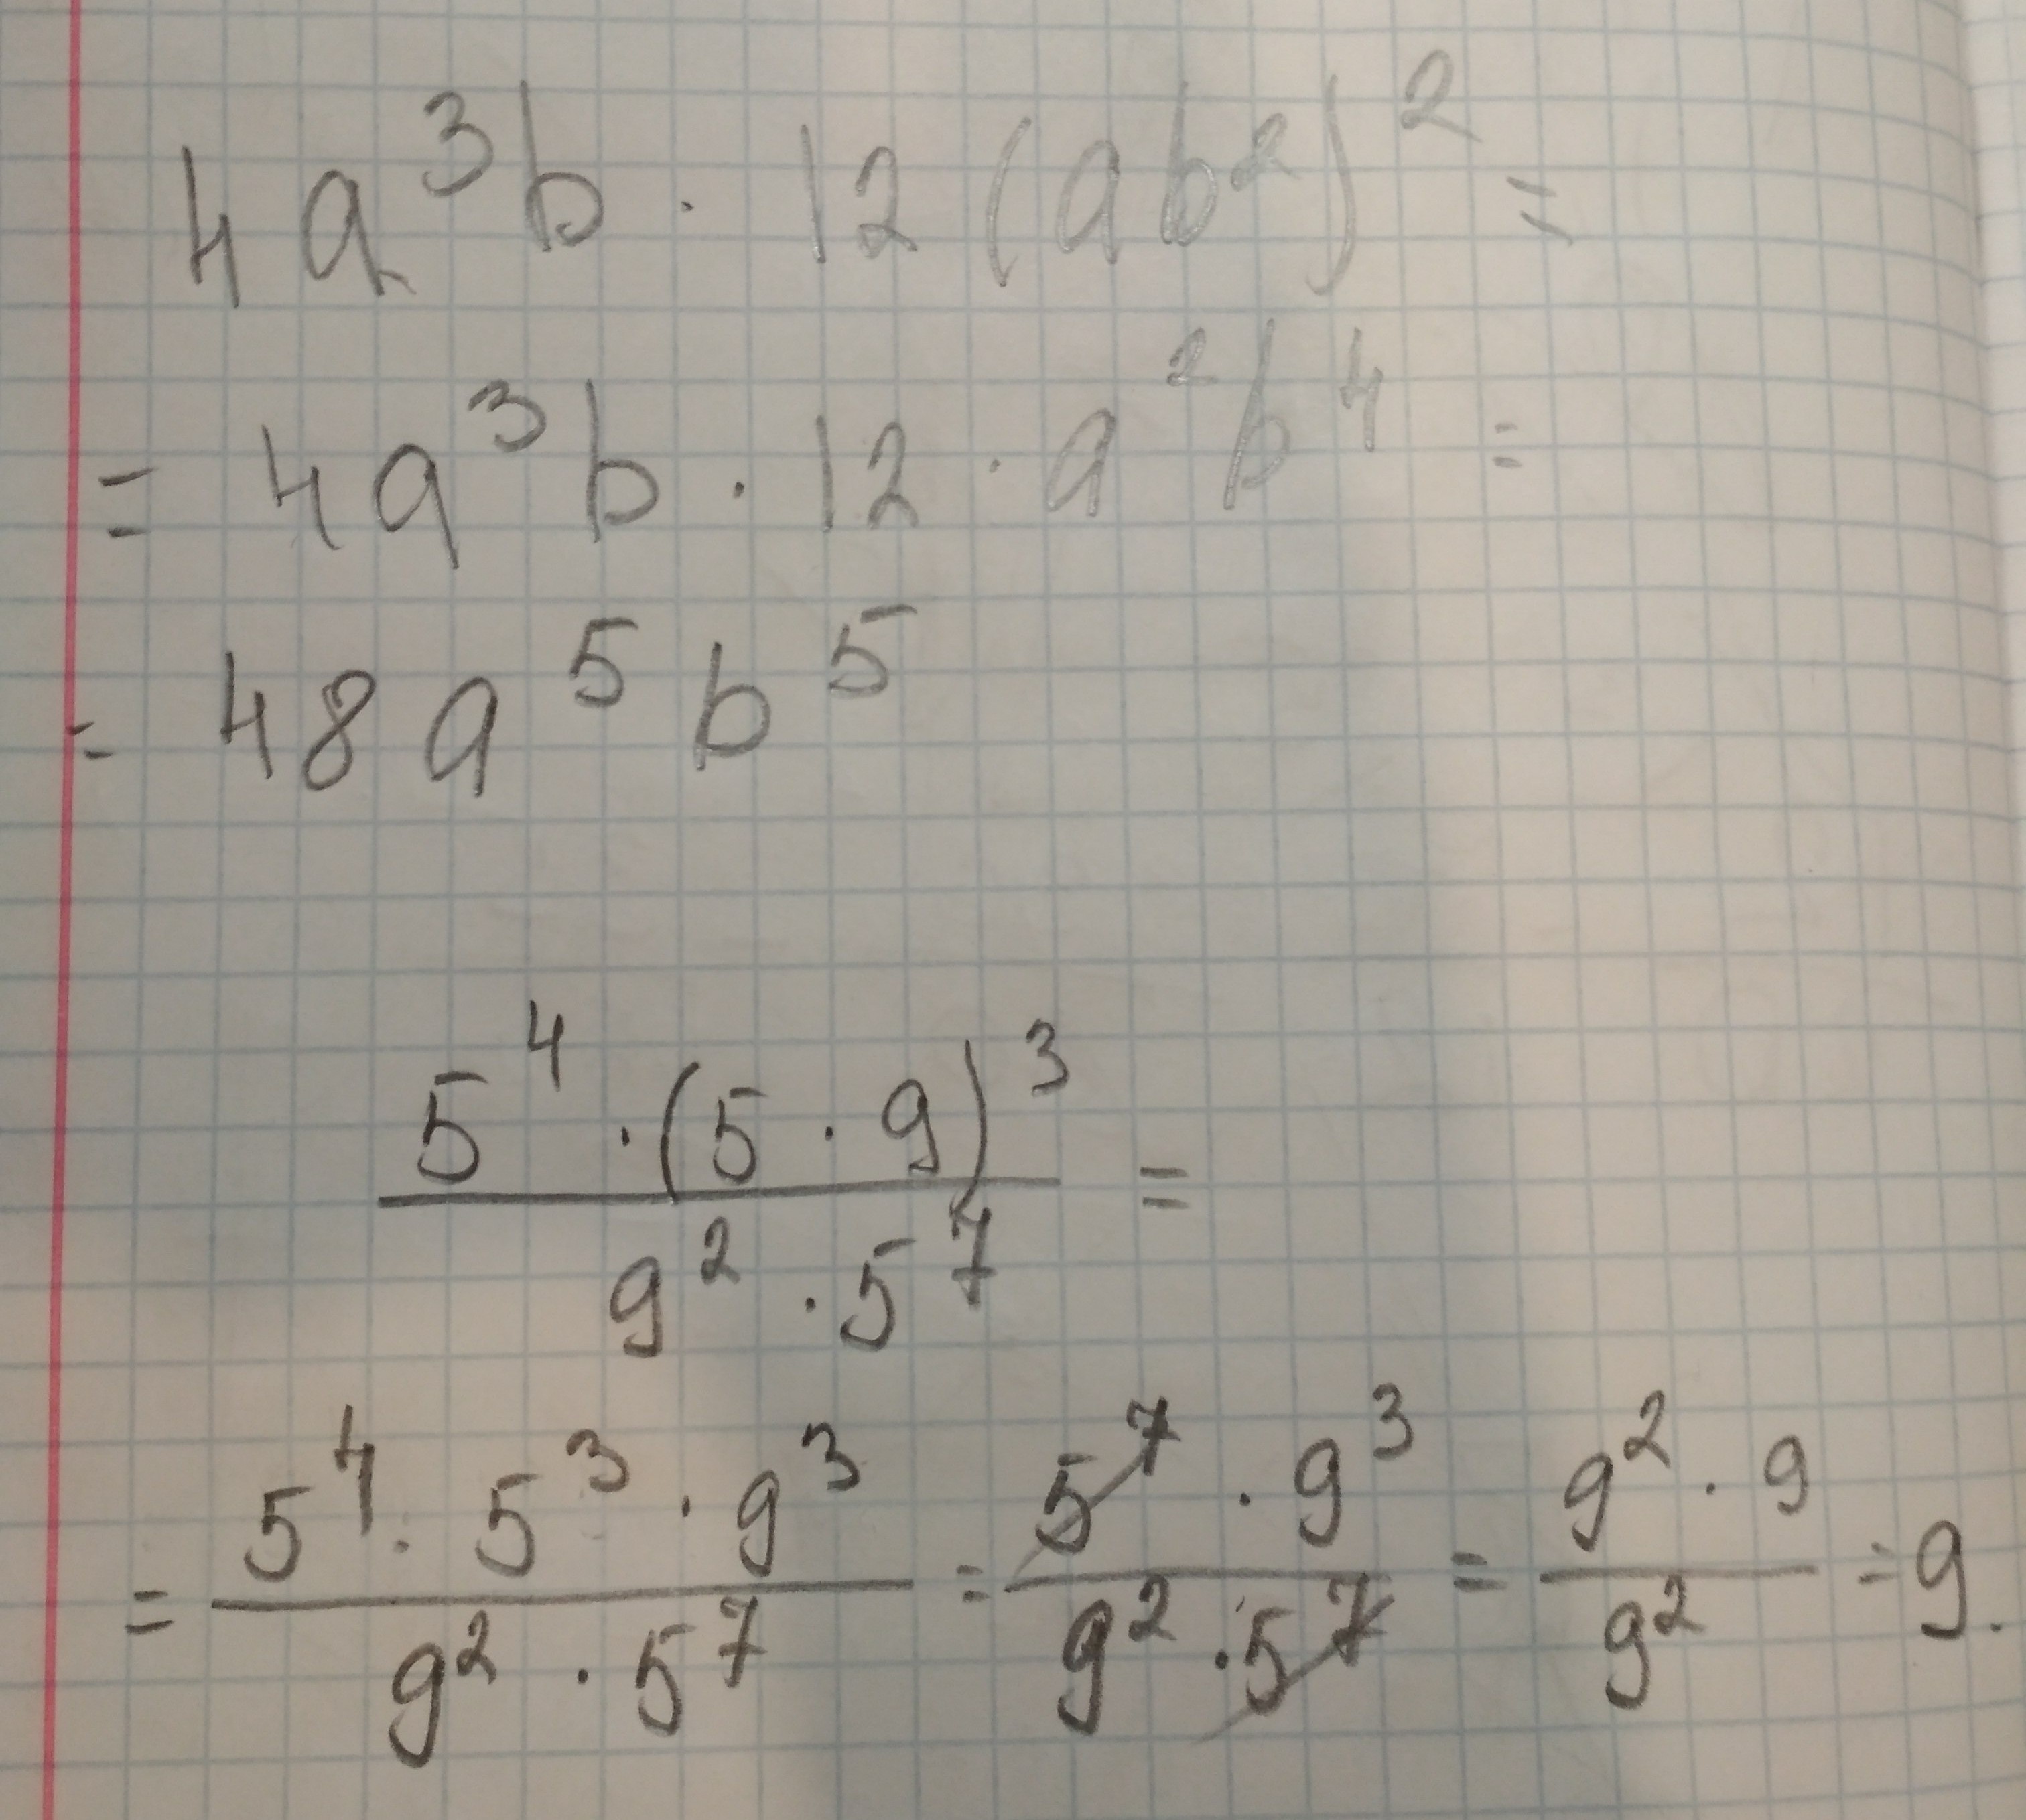 4a³b · 12(ab²)² =
= 4a³b · 12 · a²b⁴ =
= 48a⁵b⁵
5⁴ · (5 · 9)³ / 9² · 5⁷ =
= 5⁴ · 5³ · 9³ / 9² · 5⁷ = 5⁷ · 9³ / 9² · 5⁷ = 9² · 9 / 9² = 9.